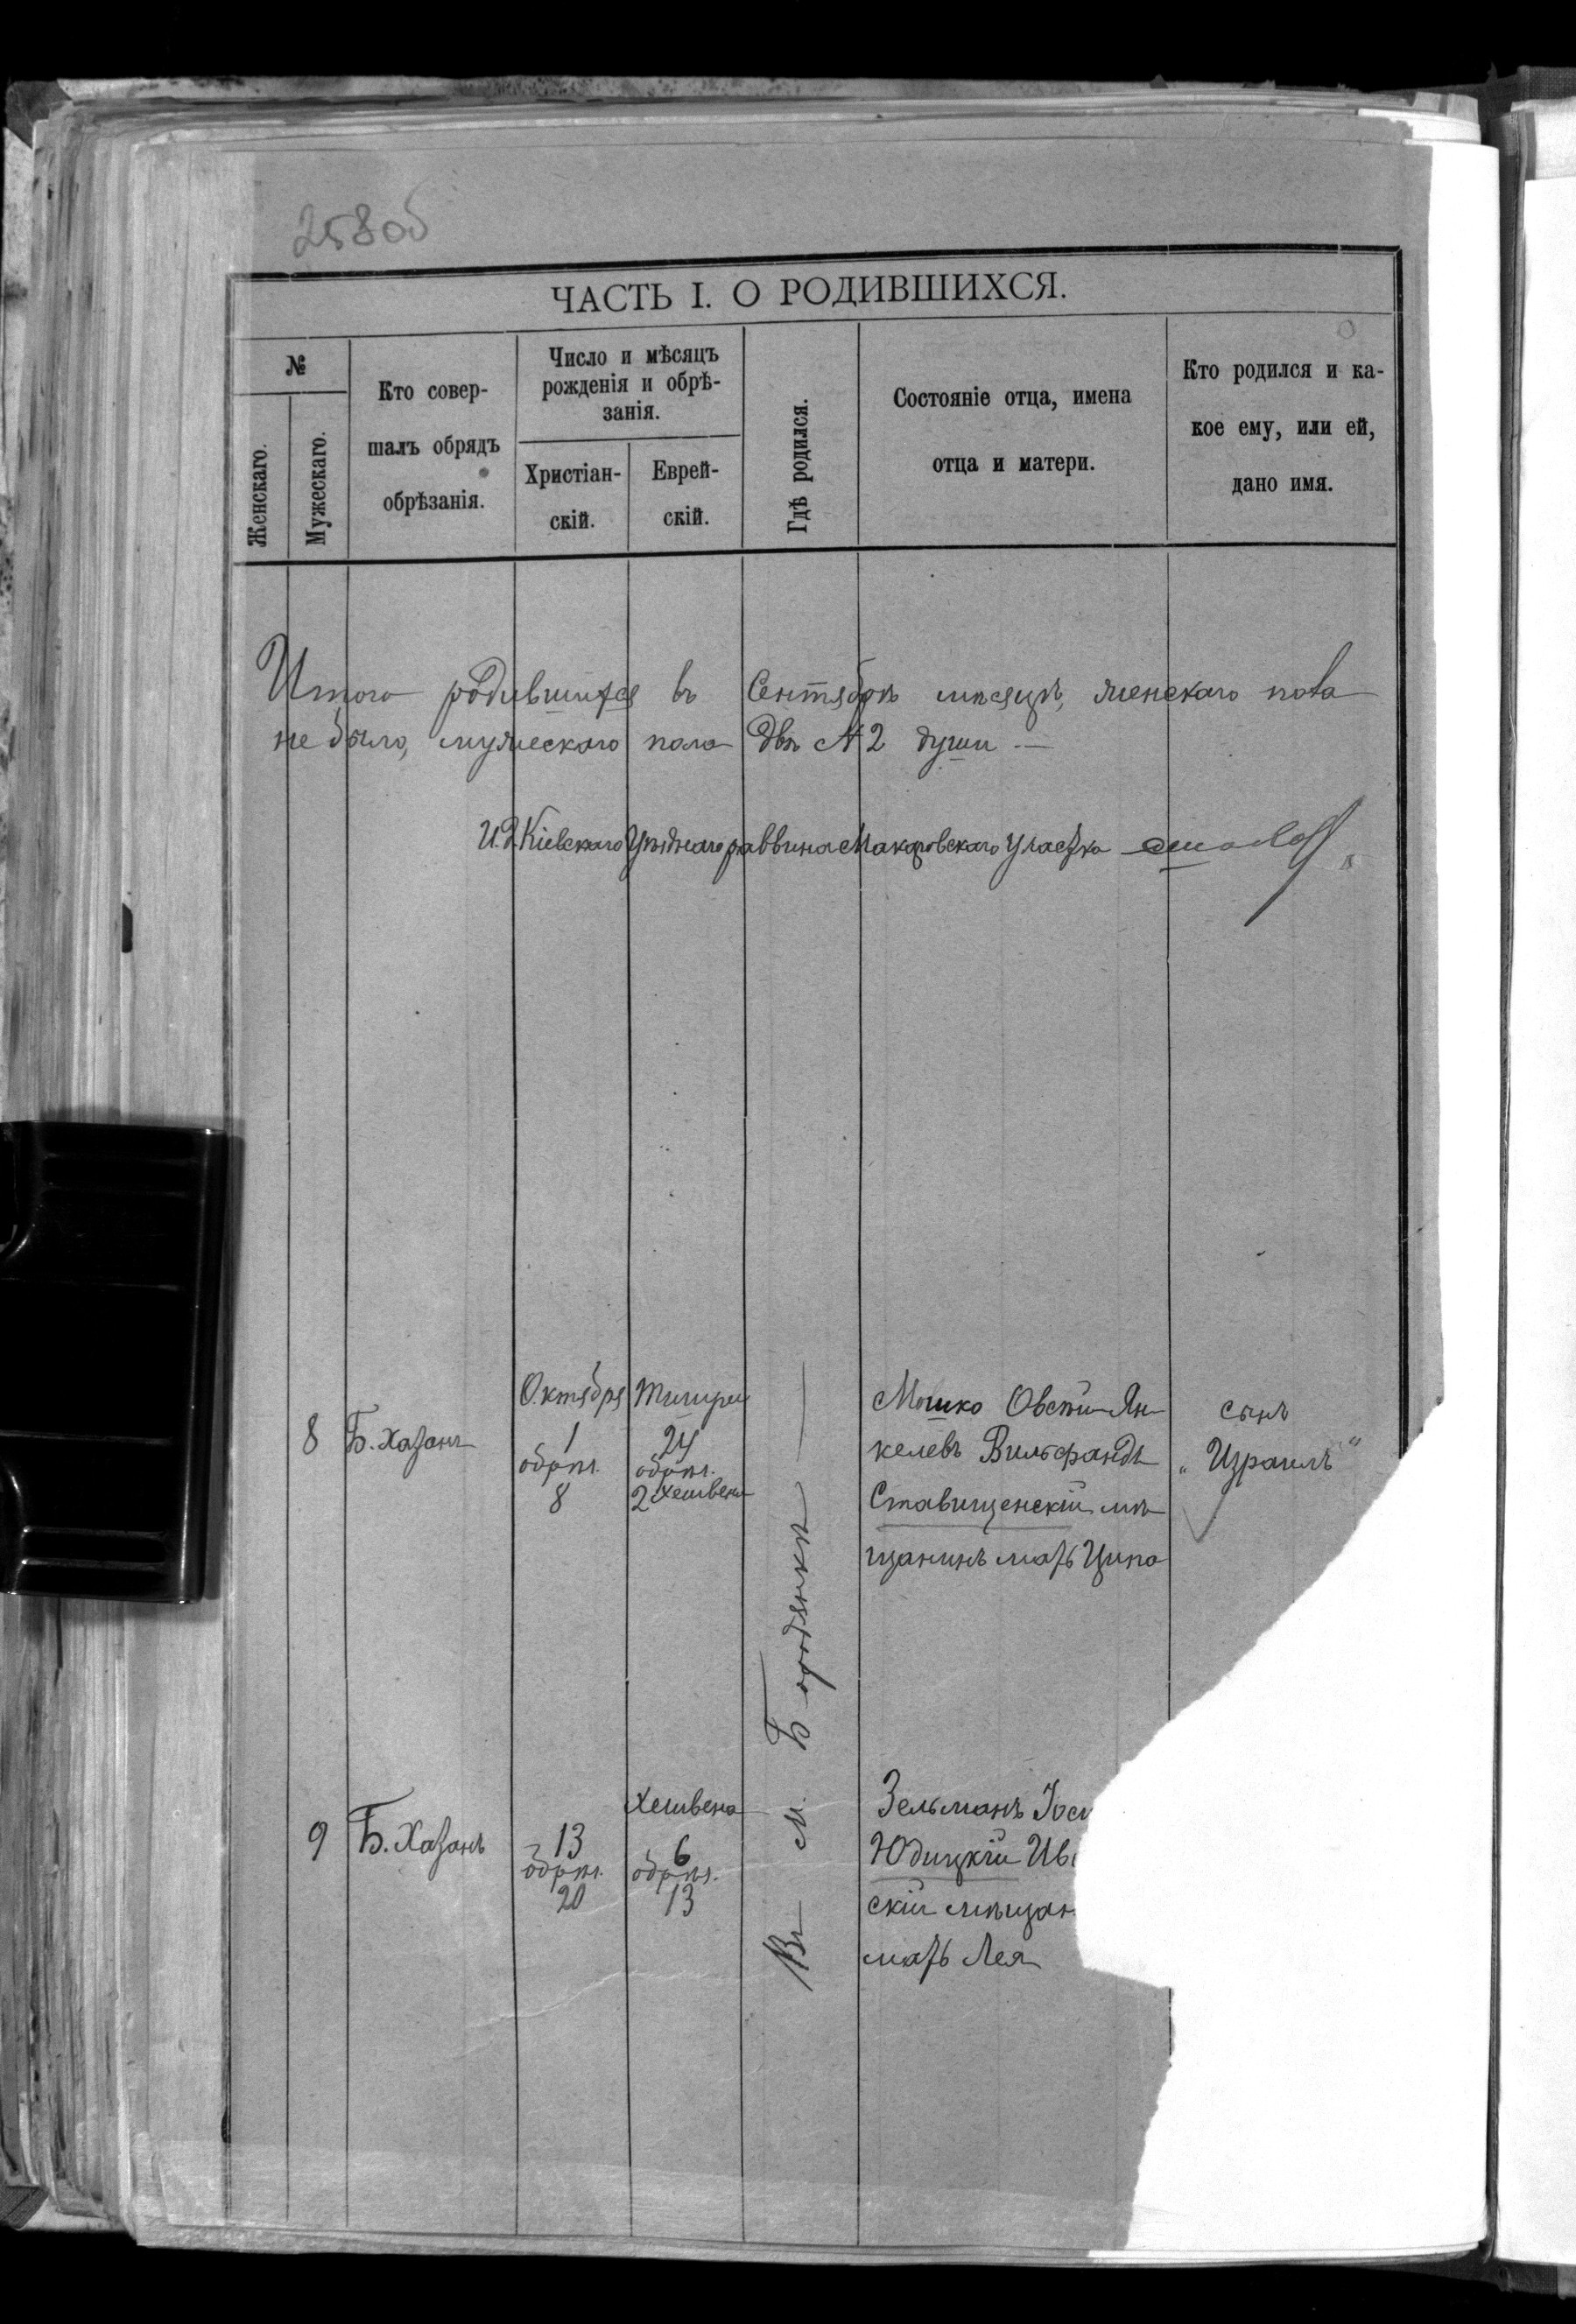 258об
ЧАСТЬ I. О РОДИВШИХСЯ.
№
Женскаго.
Мужескаго.
Кто совер-
шалъ обрядъ
обрѣзанія.
Число и мѣсяцъ
рожденія и обрѣ-
занія.
Христіан-
скій.
Еврей-
скій.
Гдѣ родился.
Состояніе отца, имена
отца и матери.
Кто родился и ка-
кое ему, или ей,
дано имя.
Итого родившихся въ Сентябрѣ мѣсяцѣ, женскаго пола
не было, мужескаго пола двѣ № 2 души —
И.д. Кіевскаго Уѣзднаго раввина Макаровскаго Участка
8
Б. Хазанъ
Октября
1
обрѣз.
8
Тишрей
24
обрѣз.
2 Хешвена
Въ м. Бородянкѣ —
Мошко Овсей Ян-
келевъ Вильфандъ
Ставищенскій мѣ-
щанинъ мать Ципа
сынъ
„Израиль“
9
Б. Хазанъ
13
обрѣз.
20
Хешвена
6
обрѣз.
13
Зельманъ Іос
Юдицкій Ив
скій мѣщан
мать Лея